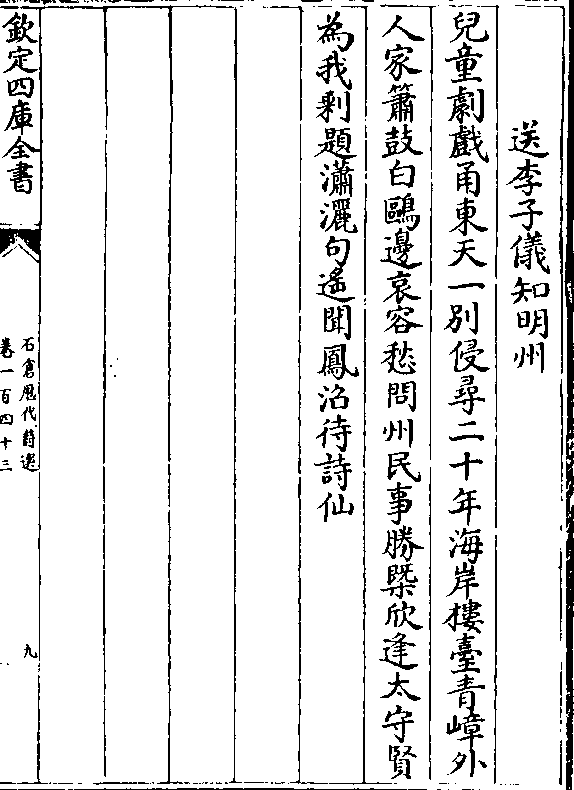 送李子儀知明州
兒童劇戲甬東天一別侵尋二十年海岸樓臺青嶂外
人家簫鼓白鷗邊哀容愁問州民事勝槩欣逢太守賢
為我剰題瀟灑句遙聞鳳沼待詩仙
欽定四庫全書
石倉歴代詩選
卷一百四十三
九